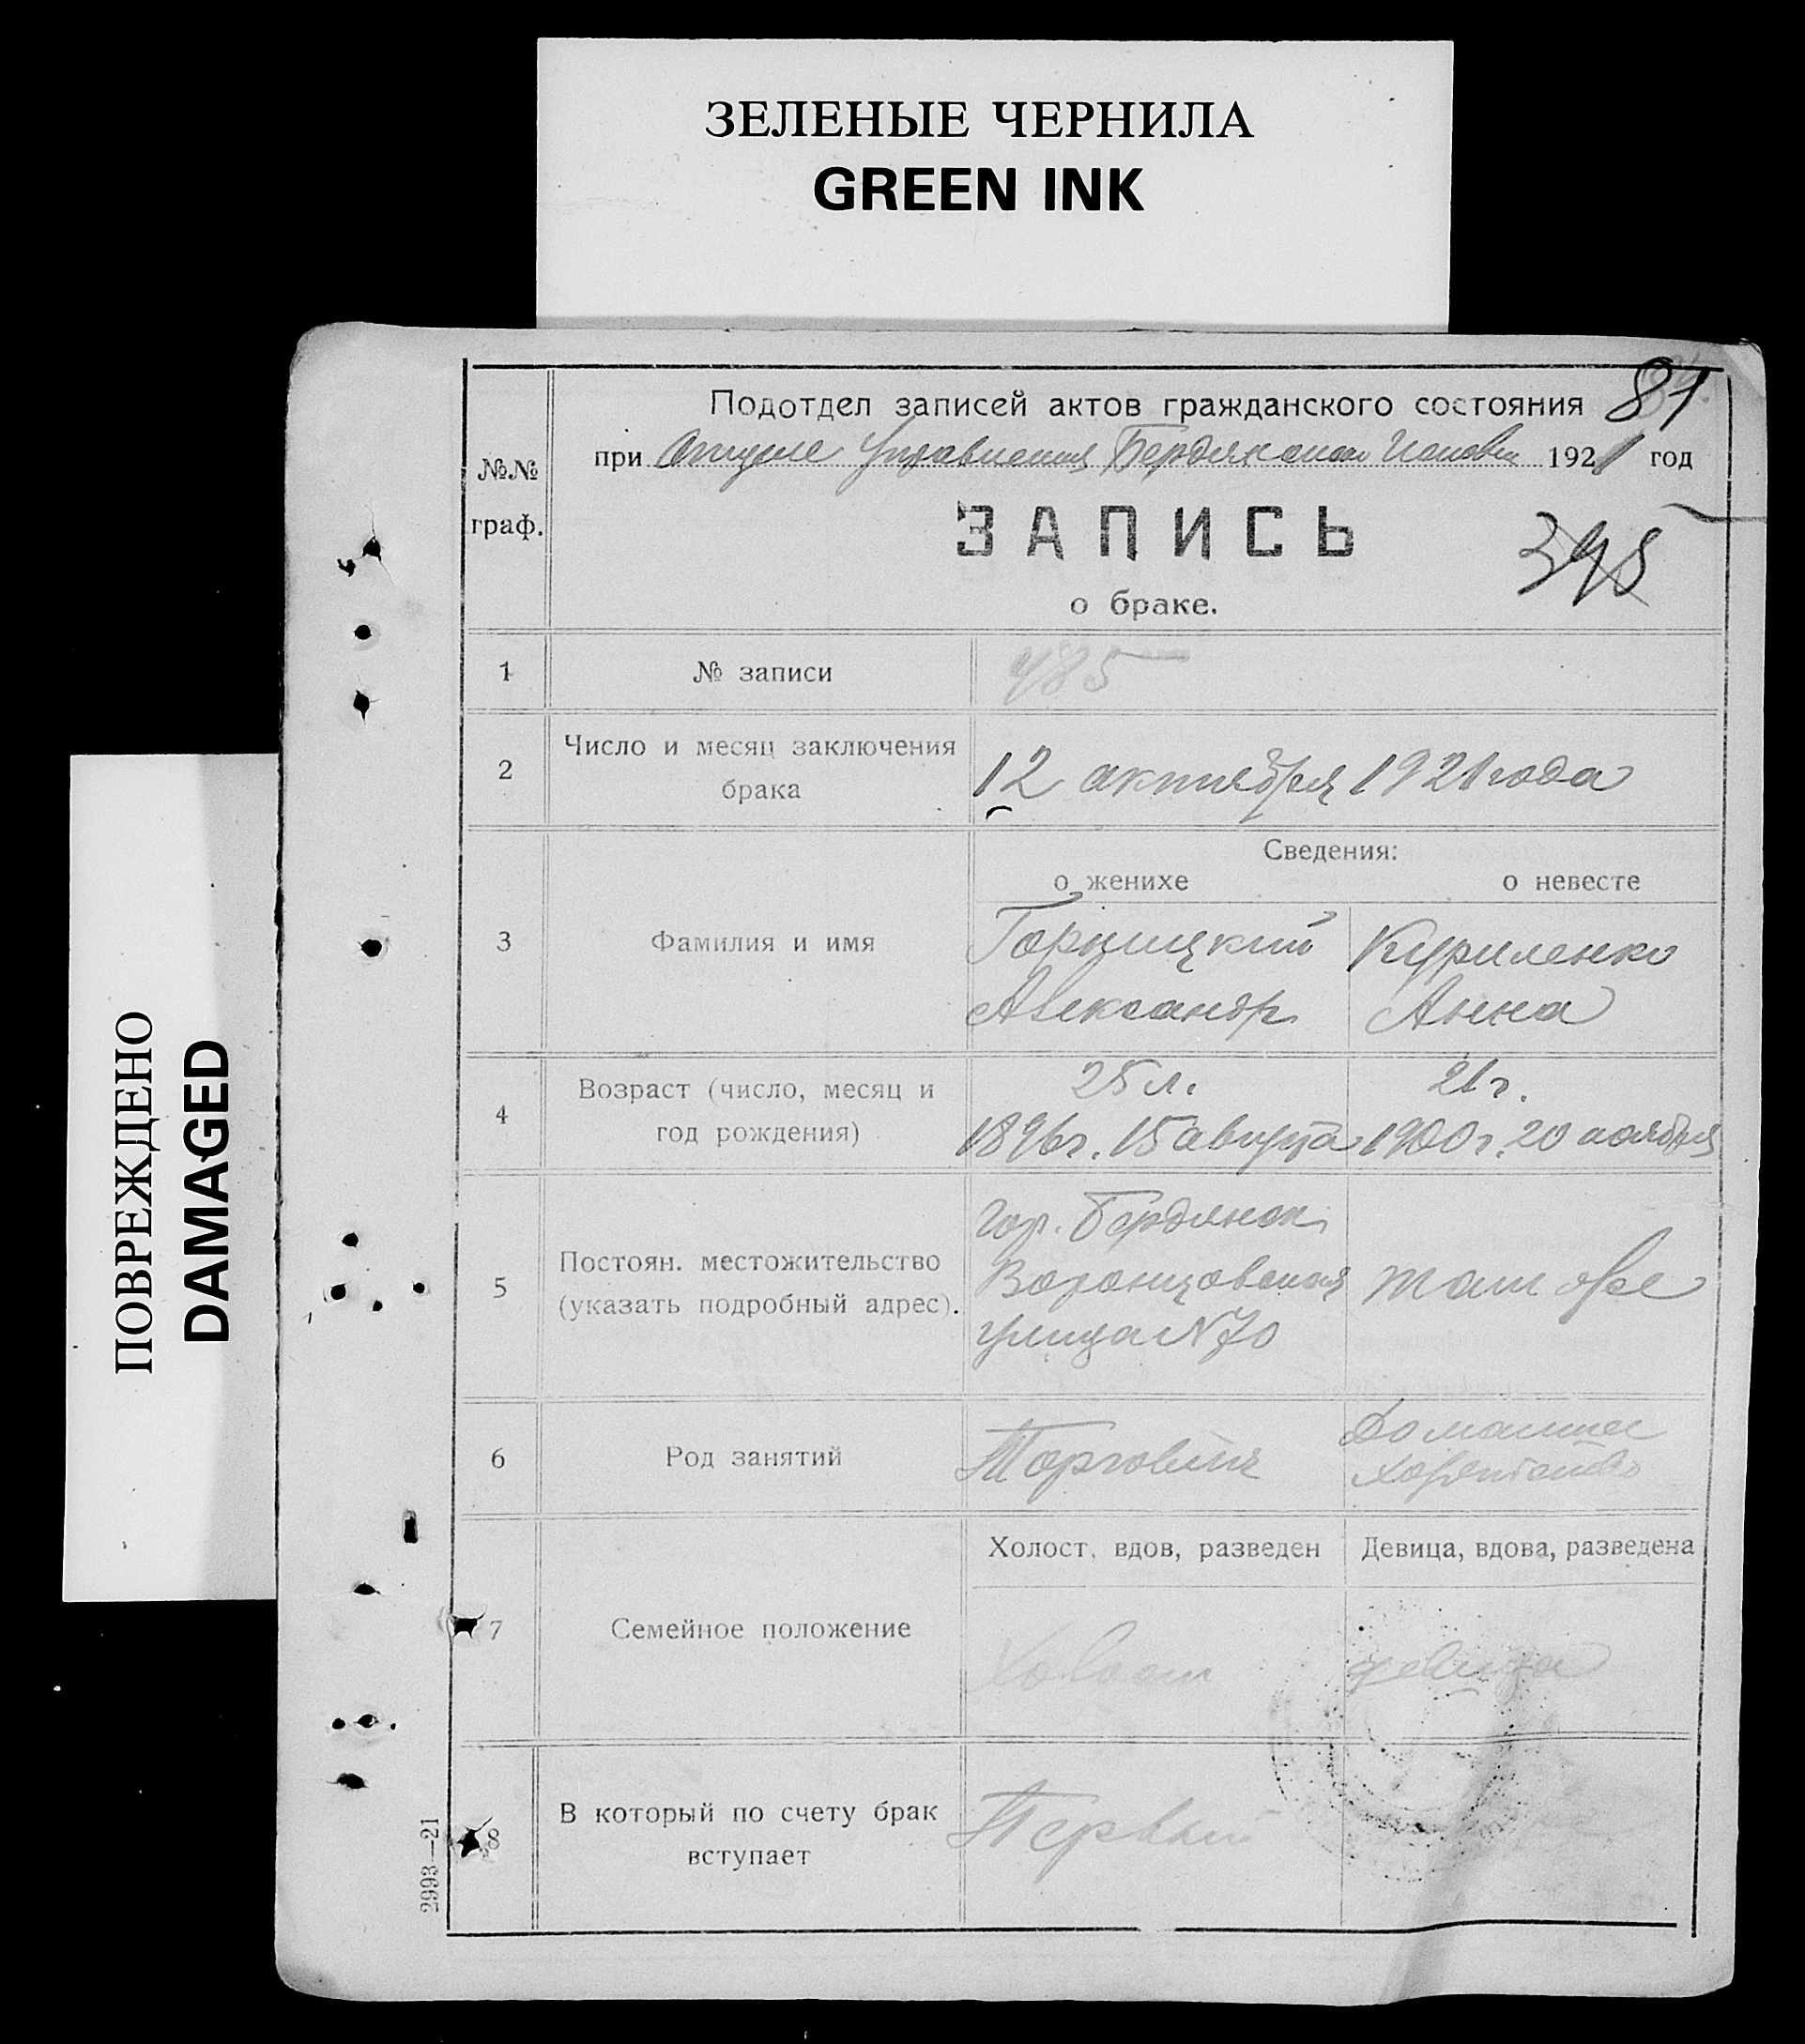 ЗЕЛЕНЫЕ ЧЕРНИЛА
GREEN INK
ПОВРЕЖДЕНО
DAMAGED
81
Подотдел записей актов гражданского состояния
при Отделе Управления Бердянского 1921 год
№№
граф.
ЗАПИСЬ
395
о браке.
1 № записи 485
2 Число и месяц заключения
брака
12 октября 1921 года
Сведения:
о женихе о невесте
3 Фамилия и имя
Горницкий Куриленко
Александр Анна
4 Возраст (число, месяц и
год рождения)
25 л. 21 г.
1896 г. 15 августа 1900 г. 20 ноября
5 Постоян. местожительство
(указать подробный адрес).
гор. Бердянск
Воронцовская там же
улица N 70
6 Род занятий
Торговля Домашнее
хозяйство
Холост, вдов, разведен Девица, вдова, разведена
7 Семейное положение
Холост девица
8 В который по счету брак
вступает
Первый
2993—21